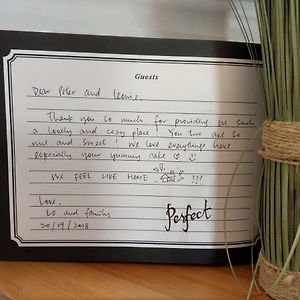 Guests
Dear Peter and Leonie,
Thank you so much for providing us such
a lovely and cozy place! You two are so
nice and sweet! We love everything here
especially your yummy cake
WE FEEL LIKE HOME !!!
Love,
Lo and family
20/09/2018
Perfect